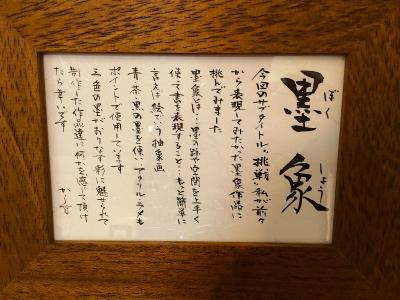 墨象
ぼくしょう
今回のサブタイトル〝挑戦〟私が前々
から表現してみたかった墨象作品に
挑んでみました
墨象とは…墨の跡や空間を上手く
使って書を表現すること…もっと簡単に
言えば絵でいう抽象画
青・茶・黒の墨を使い アクリル・ラメも
ポイントで使用しています
三色の墨がおりなす彩に魅せられて
制作した作品達に何かを感じて頂け
たら幸いです